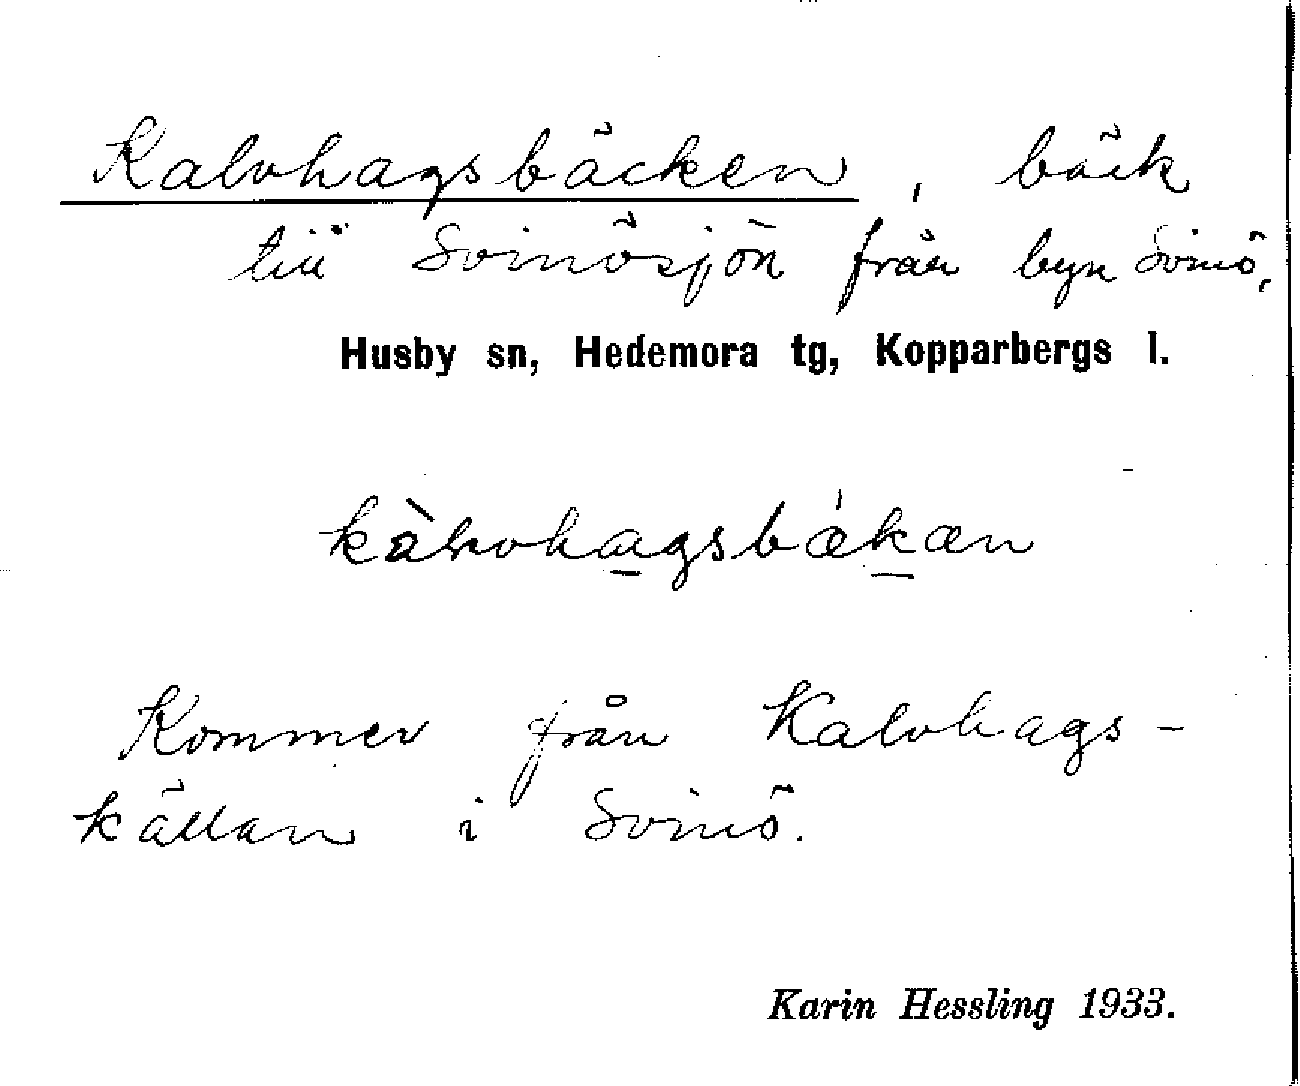 Kalvhagsbäcken, bäck
till Svinösjön från byn Svinö.
Husby sn, Hedemora tg, Kopparbergs l.
kàlvhagsbǽkæn
Kommer från Kalvhags-
källan i Svinö.
Karin Hessling 1933.